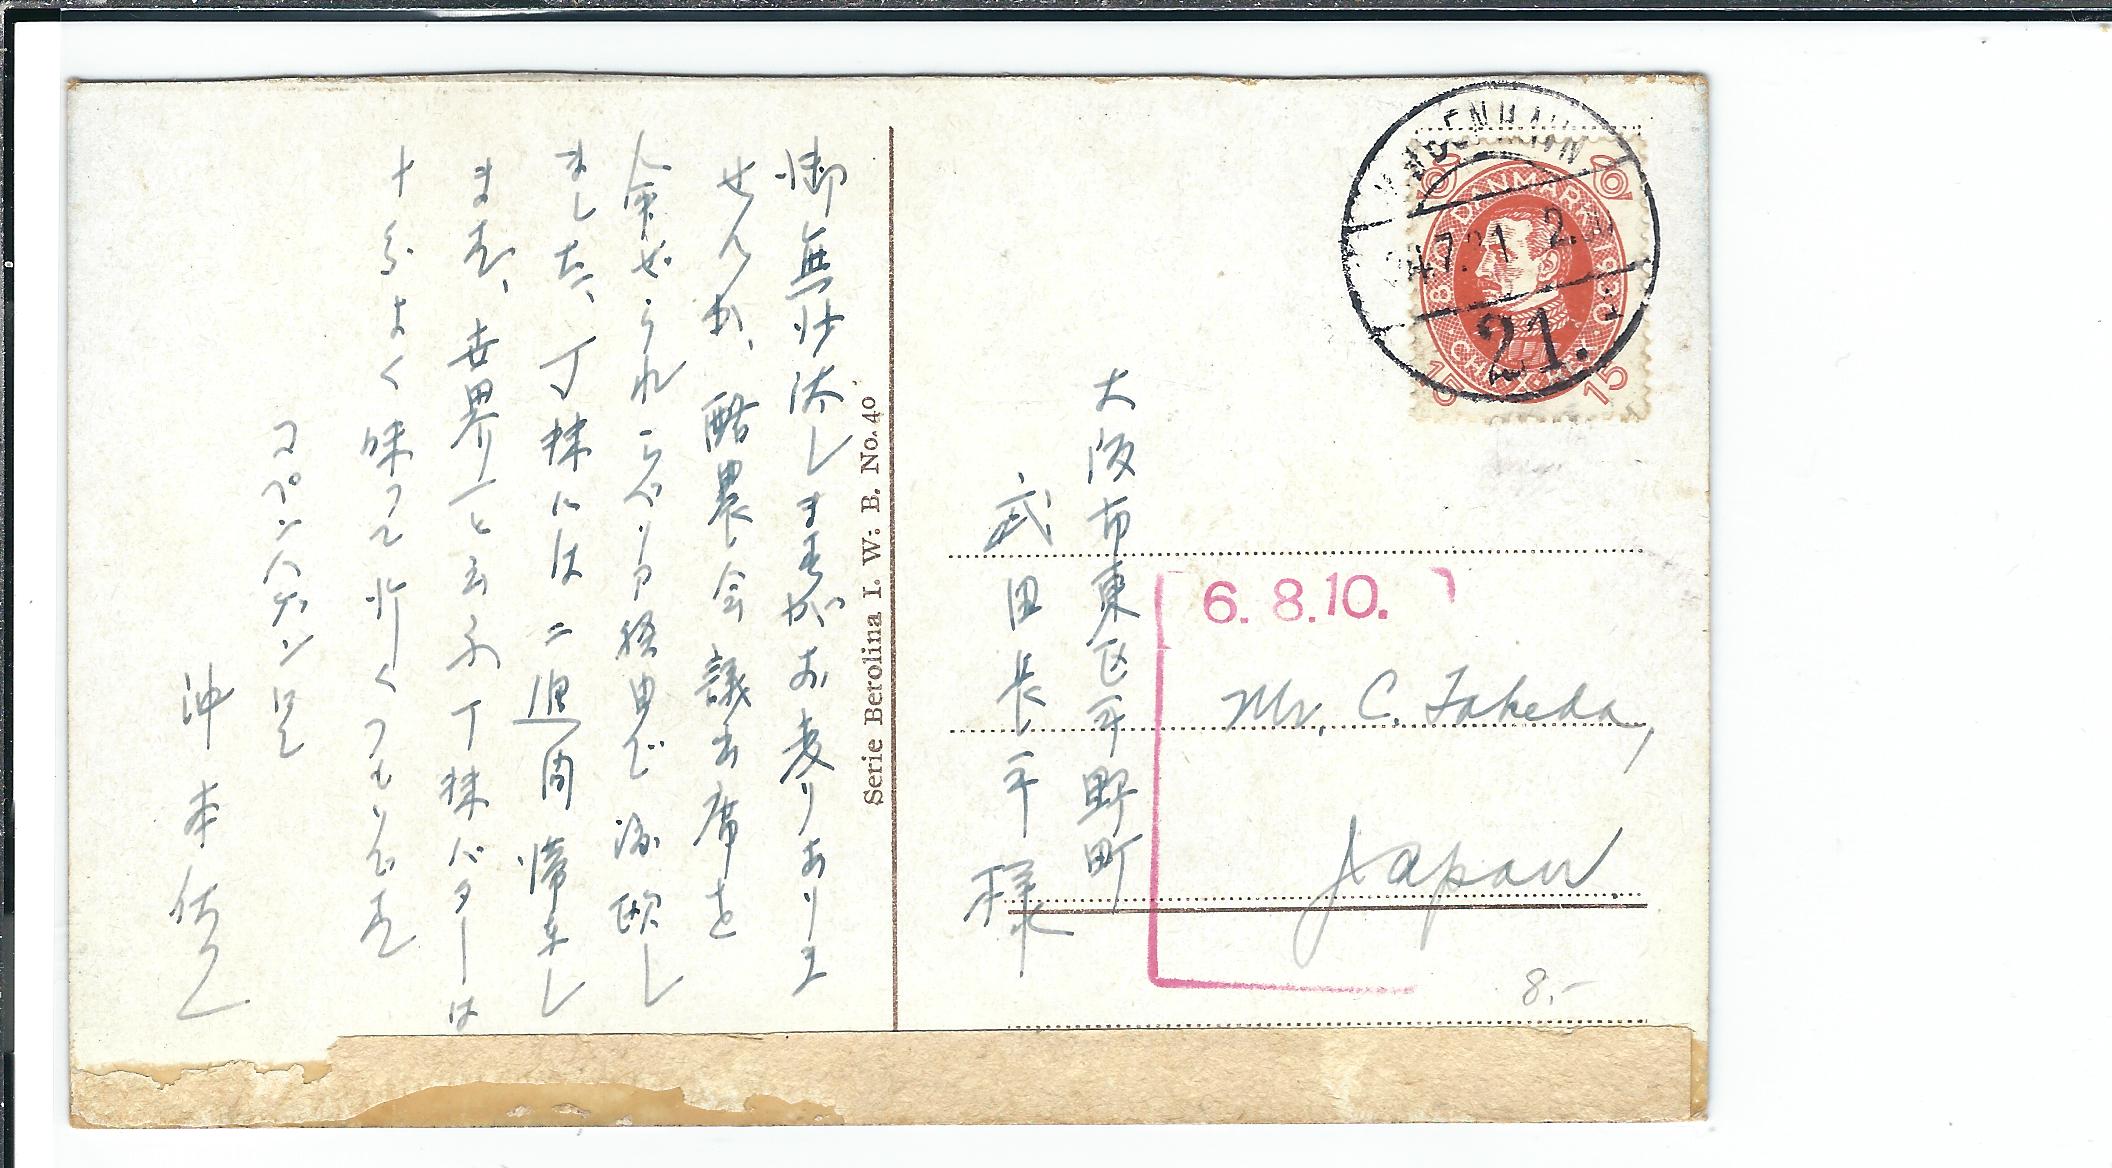 御無沙汰しますがお変りありま
せんか、酪農会議出席を
命ぜられシベリア経由で渡欧し
ました、丁抹には二週間滞在し
ます、世界一と云ふ丁抹バターは
十分よく味って行くつもりです
コペンハーゲンにて
沖本佐一
Serie Berolina I. W. B. No. 40
大阪市東区平野町
武田長平様
KØBENHAVN
21.
DANMARK
15 15
6. 8. 10.
Mr. C. Takeda,
Japan
8.-